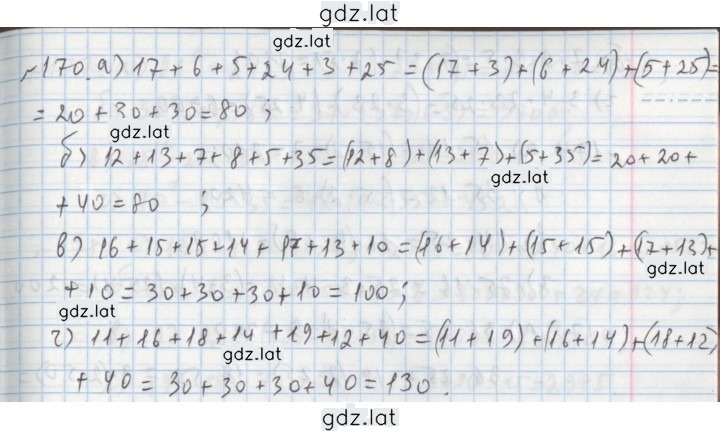 gdz.lat
gdz.lat
№170. а) 17 + 6 + 5 + 24 + 3 + 25 = (17 + 3) + (6 + 24) + (5 + 25) =
= 20 + 30 + 30 = 80 ;
gdz.lat
б) 12 + 13 + 7 + 8 + 5 + 35 = (12 + 8) + (13 + 7) + (5 + 35) = 20 + 20 +
gdz.lat
+ 40 = 80 ;
в) 16 + 15 + 15 + 14 + 17 + 13 + 10 = (16 + 14) + (15 + 15) + (17 + 13) +
gdz.lat
+ 10 = 30 + 30 + 30 + 10 = 100 ;
г) 11 + 16 + 18 + 14 + 19 + 12 + 40 = (11 + 19) + (16 + 14) + (18 + 12)
gdz.lat
+ 40 = 30 + 30 + 30 + 40 = 130.
gdz.lat